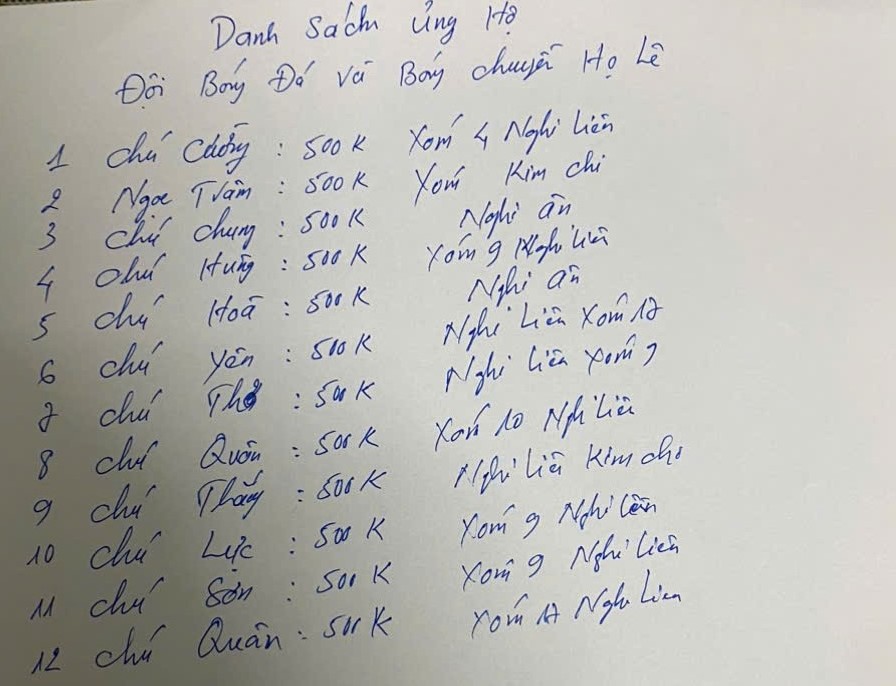 Danh Sách Ủng Hộ
Đội Bóng Đá và Bóng chuyền Họ Lê
1 chú Cường : 500K Xóm 4 Nghi Liên
2 Ngọc Trâm : 500K Xóm Kim chi
3 chú chung : 500K Nghi ân
4 chú Hưng : 500K Xóm 9 Nghi Liên
5 chú Hoà : 500K Nghi ân
6 chú yên : 500K Nghi Liên Xóm 17
7 chú : 500K Nghi Liên Xóm 9
8 chú Quân : 500K Xóm 10 Nghi Liên
9 chú Thắng : 500K Nghi Liên Kim chi
10 chú Lực : 500K Xóm 9 Nghi Liên
11 chú Sơn : 500K Xóm 9 Nghi Liên
12 chú Quân : 500K Xóm 17 Nghi Liên